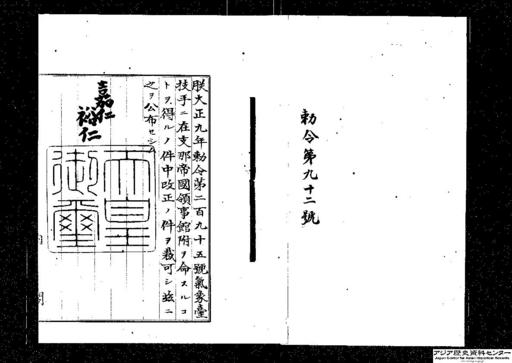 勅令第九十二號
朕大正九年勅令第二百九十五號氣象臺
技手ニ在支那帝國領事館附ヲ命スルコ
トヲ得ルノ件中改正ノ件ヲ裁可シ玆ニ
之ヲ公布セシム
嘉仁
裕仁
天皇
御璽
内
閣
アジア歴史資料センター
Japan Center for Asian Historical Records